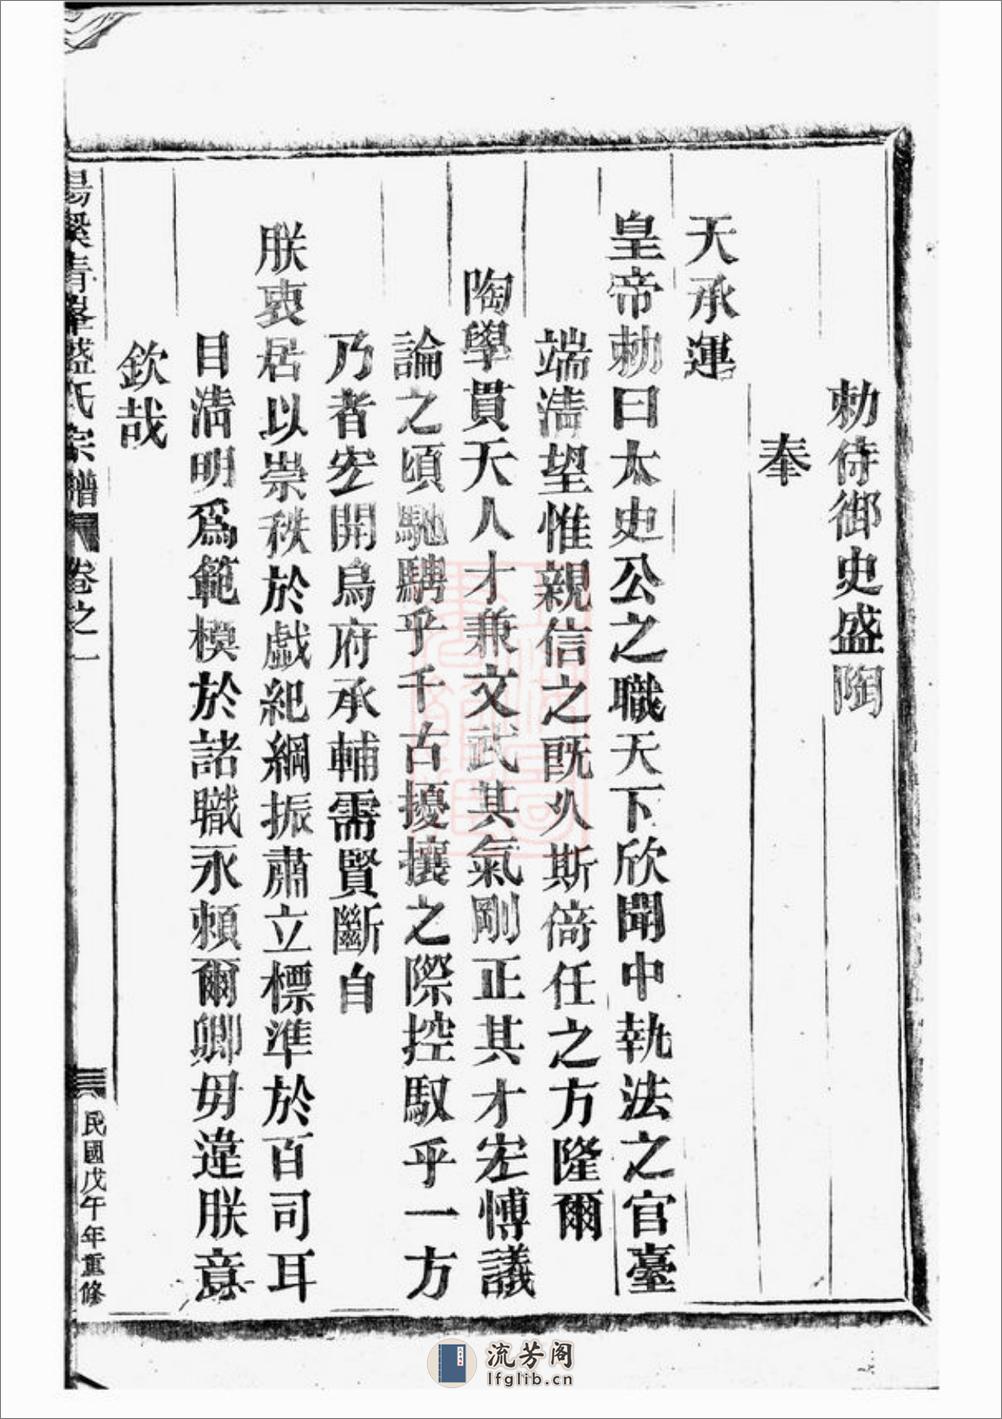 勅侍御史盛陶
奉
天承運
皇帝勅曰太史公之職天下欣聞中執法之官臺
端清望惟親信之既久斯倚任之方隆爾
陶學貫天人才兼文武其氣剛正其才宏博議
論之頃馳騁乎千古擾攘之際控馭乎一方
乃者宏開烏府承輔需賢斷自
朕衷居以崇秩於戲紀綱振肅立標準於百司耳
目清明爲範模於諸職永賴爾卿毋違朕意
欽哉
青峯盛氏宗譜 卷之一
民國戊午年重修
流芳阁
lfglib.cn